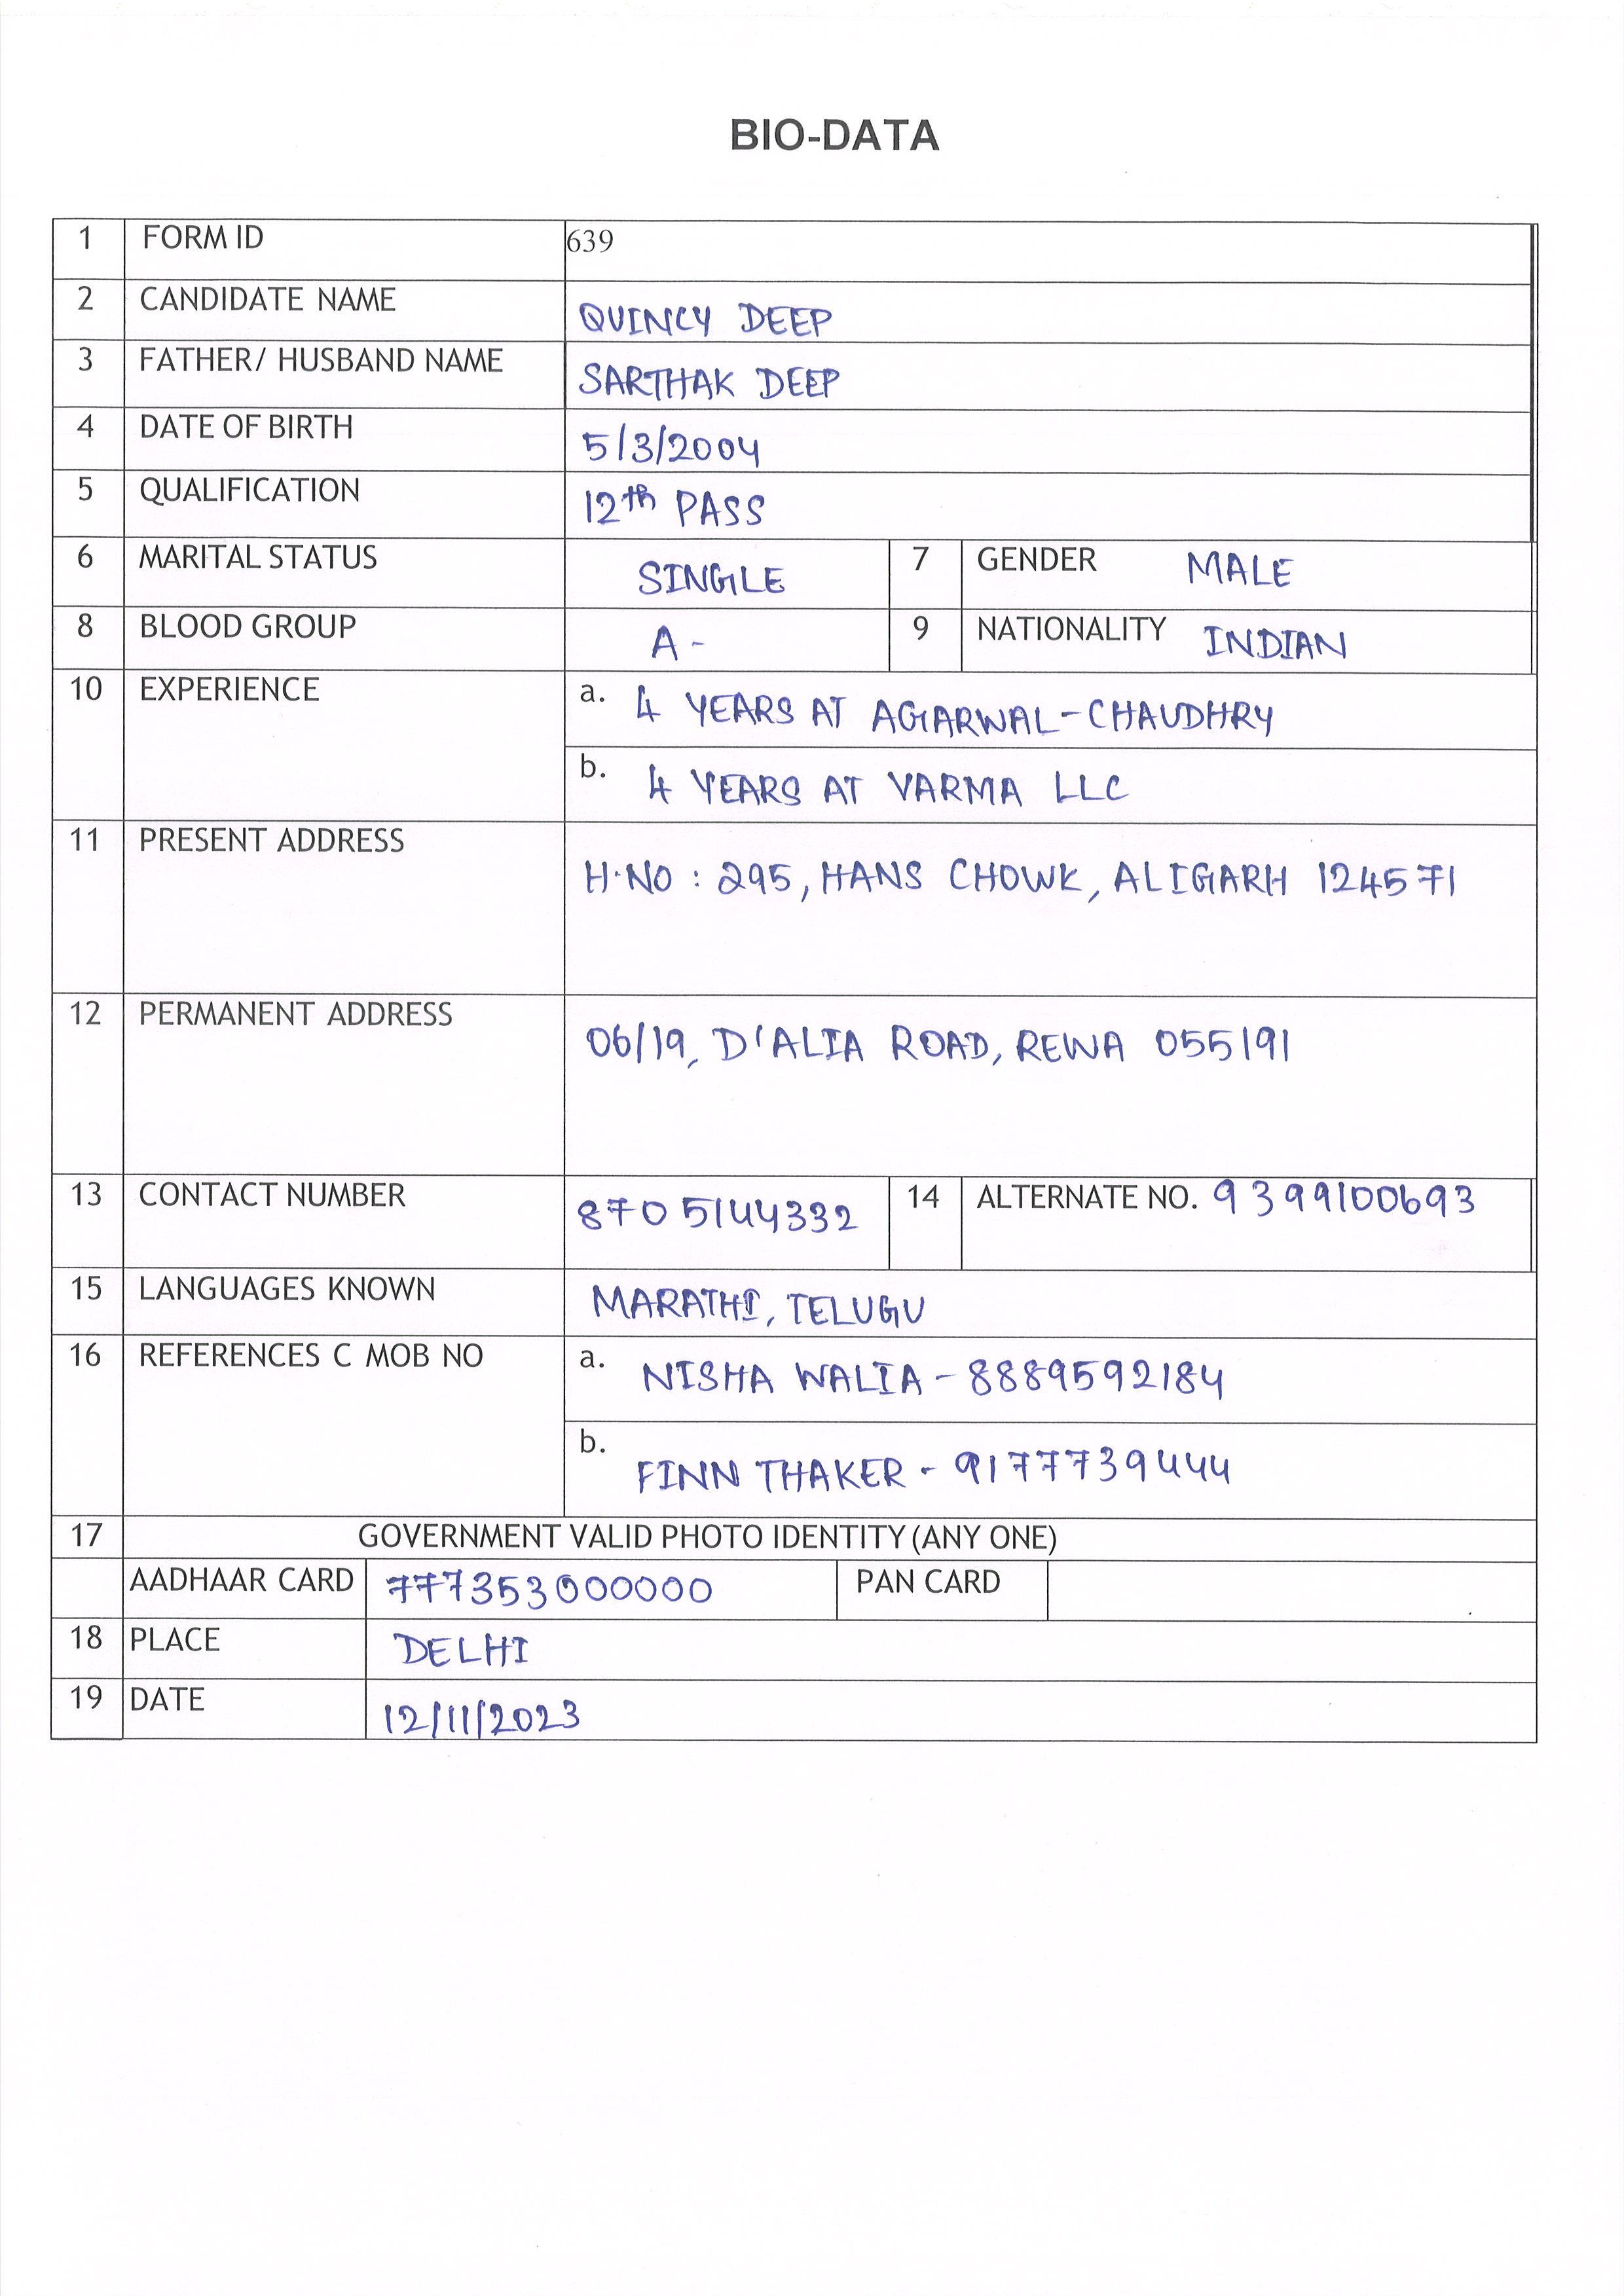 BIO-DATA
1 FORM ID 639
2 CANDIDATE NAME QUINCY DEEP
3 FATHER/ HUSBAND NAME SARTHAK DEEP
4 DATE OF BIRTH 5/3/2004
5 QUALIFICATION 12th PASS
6 MARITAL STATUS SINGLE 7 GENDER MALE
8 BLOOD GROUP A- 9 NATIONALITY INDIAN
10 EXPERIENCE a. 4 YEARS AT AGARWAL-CHAUDHRY
b. 4 YEARS AT VARMA LLC
11 PRESENT ADDRESS H.NO : 295, HANS CHOWK, ALIGARH 124571
12 PERMANENT ADDRESS 06/19, D'ALIA ROAD, REWA 055191
13 CONTACT NUMBER 8705144332 14 ALTERNATE NO. 9399100693
15 LANGUAGES KNOWN MARATHI, TELUGU
16 REFERENCES C MOB NO a. NISHA WALIA - 8889592184
b. FINN THAKER - 9177739444
17 GOVERNMENT VALID PHOTO IDENTITY (ANY ONE)
AADHAAR CARD 777353000000 PAN CARD
18 PLACE DELHI
19 DATE 12/11/2023